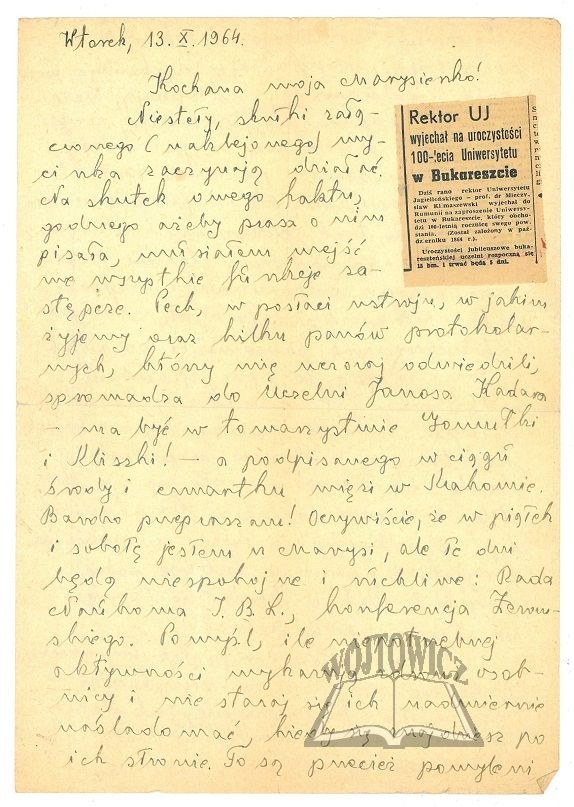 Wtorek, 13. X. 1964.
Kochana moja Marysieńko!
Niestety, skutki załą-
czonego (naklejonego) wy-
cinka zaczynają działać.
Na skutek owego faktu,
godnego ażeby prasa o nim
pisała, musiałem wejść
we wszystkie funkcje za-
stępcze. Pech, w postaci ustroju, w jakim
żyjemy oraz kilku panów protokolar-
nych, którzy mię wczoraj odwiedzili,
sprowadza do Uczelni Janosa Kadara
– ma być w towarzystwie Gomułki
i Kliszki! – a podpisanego w ciągu
środy i czwartku więzi w Krakowie.
Bardzo przepraszam! Oczywiście, że w piątek
i sobotę jestem u Marysi, ale te dni
będą niespokojne i ruchliwe: Rada
Naukowa I.B.L., konferencja Żerom-
skiego. Pomyśl, ile
aktywności wykazują osob-
nicy i nie staraj się ich nadmiernie
naśladować, kiedy się znajdziesz po
ich stronie. To są przecież pomyleni
Rektor UJ
wyjechał na uroczystości
100-lecia Uniwersytetu
w Bukareszcie
Dziś rano rektor Uniwersytetu
Jagiellońskiego – prof. dr Mieczy-
sław Klimaszewski wyjechał do
Rumunii na zaproszenie Uniwersy-
tetu w Bukareszcie, który obcho-
dzi 100-letnią rocznicę swego pow-
stania. (Został założony w paź-
dzierniku 1864 r.).
Uroczystości jubileuszowe buka-
reszteńskiej uczelni rozpoczną się
15 bm. i trwać będą 5 dni.
WÓJTOWICZ